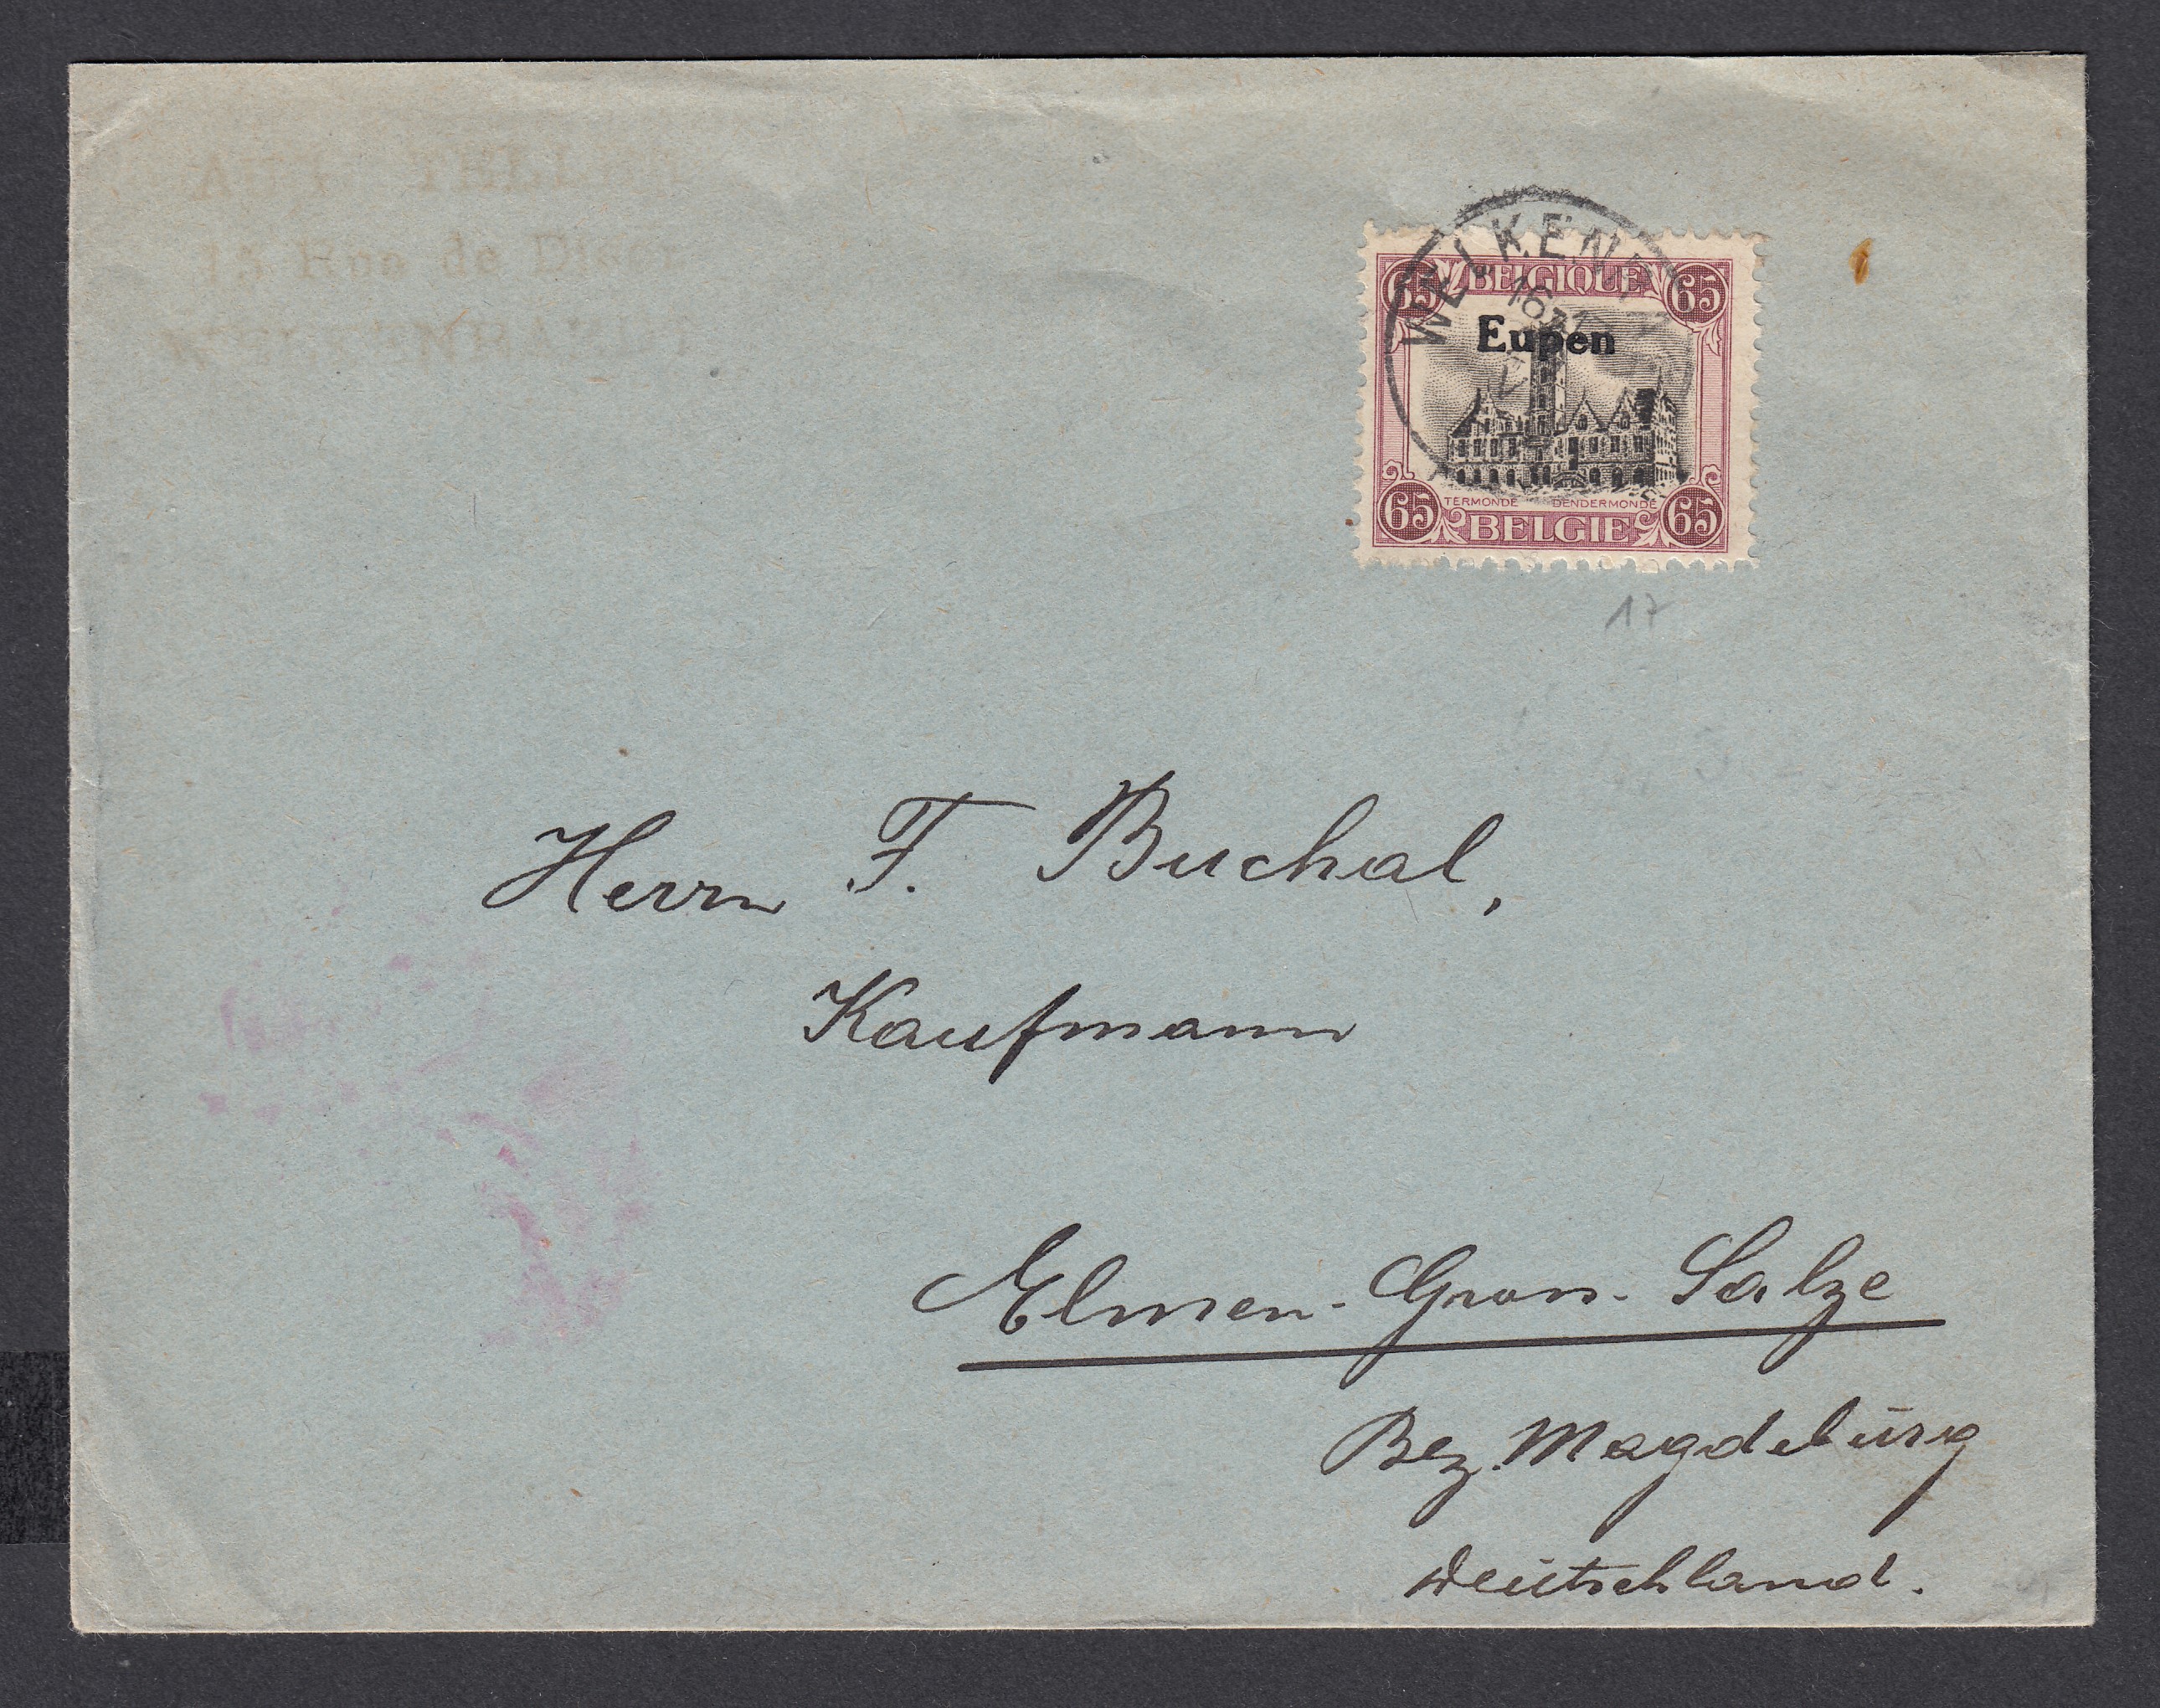 15 Rue de
65 BELGIQUE 65
Eupen
65 TERMONDE DENDERMONDE 65
BELGIE
17
Herrn F. Buchal,
Kaufmann
Elmen-Gross-Salze
Bez. Magdeburg
Deutschland.